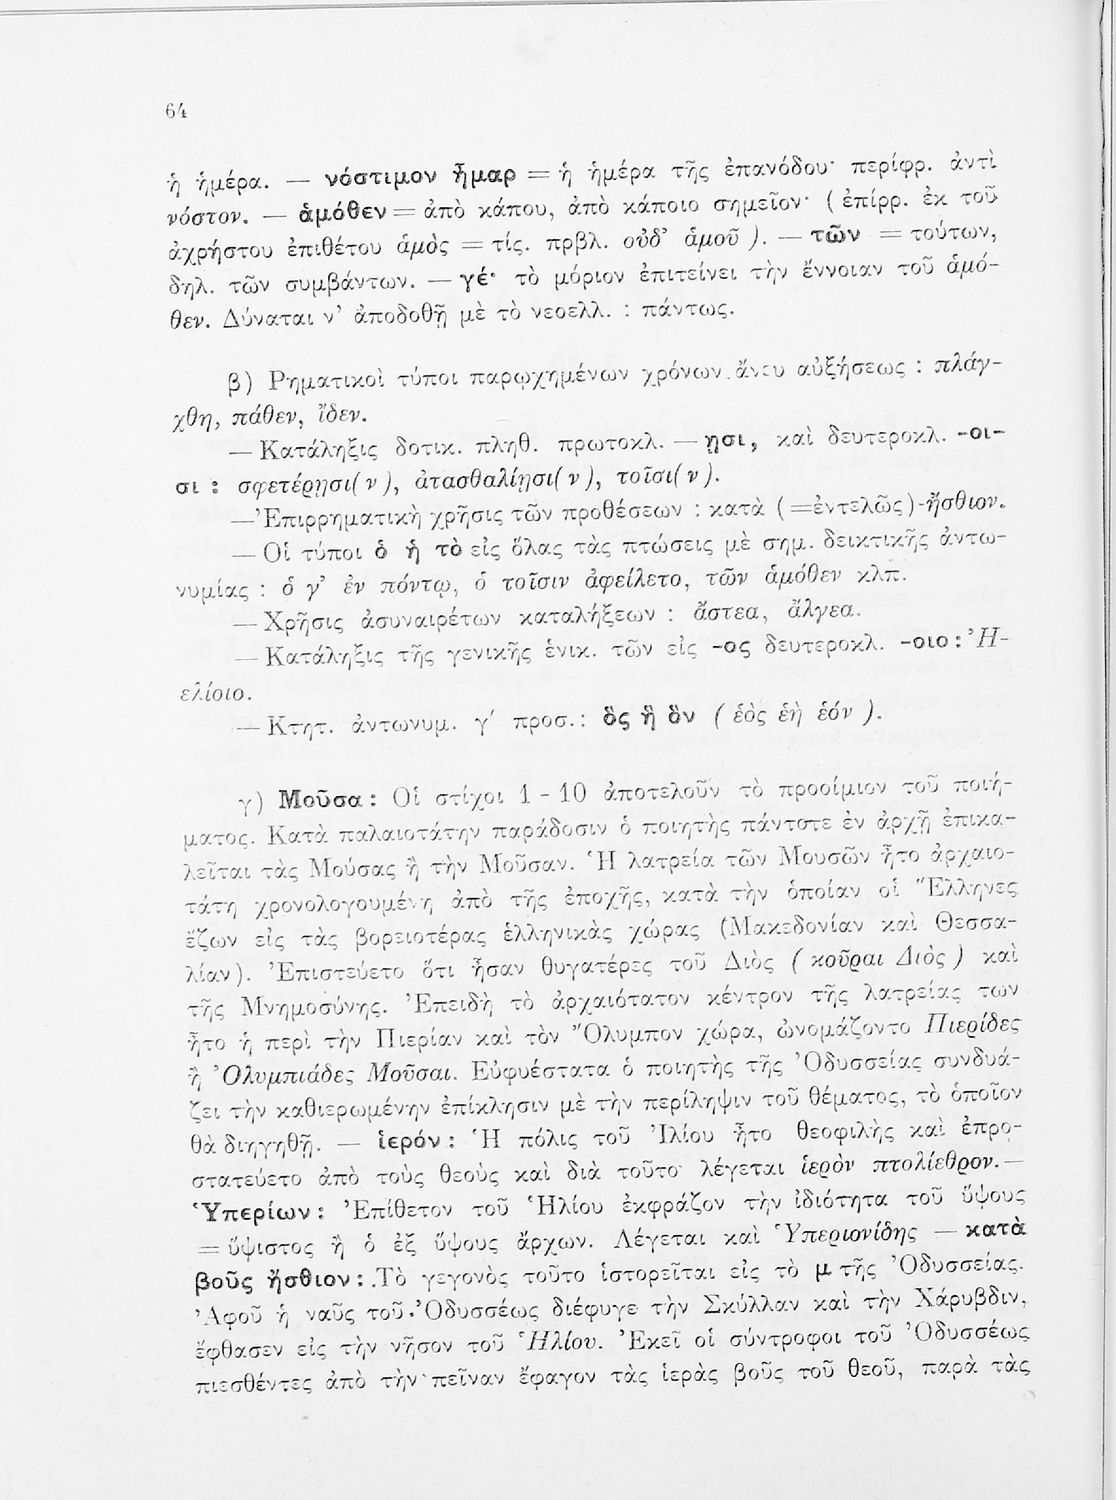 64
ἡ ἡμέρα. — νόστιμον ἦμαρ = ἡ ἡμέρα τῆς ἐπανόδου· περίφρ. ἀντὶ
νόστον. — ἁμόθεν = ἀπὸ κάπου, ἀπὸ κάποιο σημεῖον· ( ἐπίρρ. ἐκ τοῦ
ἀχρήστου ἐπιθέτου ἁμὸς = τίς. πρβλ. οὐδ’ ἁμοῦ ). — τῶν = τούτων,
δηλ. τῶν συμβάντων. — γέ· τὸ μόριον ἐπιτείνει τὴν ἔννοιαν τοῦ ἁμό-
θεν. Δύναται ν’ ἀποδοθῇ μὲ τὸ νεοελλ. : πάντως.
β) Ρηματικοὶ τύποι παρῳχημένων χρόνων ἄνευ αὐξήσεως : πλάγ-
χθη, πάθεν, ἴδεν.
— Κατάληξις δοτικ. πληθ. πρωτοκλ. — ῃσι, καὶ δευτεροκλ. -οι-
σι : σφετέρῃσι( ν ), ἀτασθαλίῃσι( ν ), τοῖσι( ν ).
— Ἐπιρρηματικὴ χρῆσις τῶν προθέσεων : κατὰ ( =ἐντελῶς )-ἤσθιον.
— Οἱ τύποι ὁ ἡ τὸ εἰς ὅλας τὰς πτώσεις μὲ σημ. δεικτικῆς ἀντω-
νυμίας : ὁ γ’ ἐν πόντῳ, ὁ τοῖσιν ἀφείλετο, τῶν ἁμόθεν κλπ.
— Χρῆσις ἀσυναιρέτων καταλήξεων : ἄστεα, ἄλγεα.
— Κατάληξις τῆς γενικῆς ἑνικ. τῶν εἰς -ος δευτεροκλ. -οιο : Ἠ-
ελίοιο.
— Κτητ. ἀντωνυμ. γ΄ προσ.: ὃς ἣ ὃν ( ἑὸς ἑὴ ἑόν ).
γ) Μοῦσα : Οἱ στίχοι 1 - 10 ἀποτελοῦν τὸ προοίμιον τοῦ ποιή-
ματος. Κατὰ παλαιοτάτην παράδοσιν ὁ ποιητὴς πάντοτε ἐν ἀρχῇ ἐπικα-
λεῖται τὰς Μούσας ἢ τὴν Μοῦσαν. Ἡ λατρεία τῶν Μουσῶν ἦτο ἀρχαιο-
τάτη χρονολογουμένη ἀπὸ τῆς ἐποχῆς, κατὰ τὴν ὁποίαν οἱ Ἕλληνες
ἔζων εἰς τὰς βορειοτέρας ἑλληνικὰς χώρας (Μακεδονίαν καὶ Θεσσα-
λίαν). Ἐπιστεύετο ὅτι ἦσαν θυγατέρες τοῦ Διὸς ( κοῦραι Διὸς ) καὶ
τῆς Μνημοσύνης. Ἐπειδὴ τὸ ἀρχαιότατον κέντρον τῆς λατρείας των
ἦτο ἡ περὶ τὴν Πιερίαν καὶ τὸν Ὄλυμπον χώρα, ὠνομάζοντο Πιερίδες
ἢ Ὀλυμπιάδες Μοῦσαι. Εὐφυέστατα ὁ ποιητὴς τῆς Ὀδυσσείας συνδυά-
ζει τὴν καθιερωμένην ἐπίκλησιν μὲ τὴν περίληψιν τοῦ θέματος, τὸ ὁποῖον
θὰ διηγηθῇ. — ἱερόν : Ἡ πόλις τοῦ Ἰλίου ἦτο θεοφιλὴς καὶ ἐπρο-
στατεύετο ἀπὸ τοὺς θεοὺς καὶ διὰ τοῦτο λέγεται ἱερὸν πτολίεθρον. —
Ὑπερίων : Ἐπίθετον τοῦ Ἡλίου ἐκφράζον τὴν ἰδιότητα τοῦ ὕψους
= ὕψιστος ἢ ὁ ἐξ ὕψους ἄρχων. Λέγεται καὶ Ὑπεριονίδης — κατὰ
βοῦς ἤσθιον : Τὸ γεγονὸς τοῦτο ἱστορεῖται εἰς τὸ μ τῆς Ὀδυσσείας.
Ἀφοῦ ἡ ναῦς τοῦ Ὀδυσσέως διέφυγε τὴν Σκύλλαν καὶ τὴν Χάρυβδιν,
ἔφθασεν εἰς τὴν νῆσον τοῦ Ἡλίου. Ἐκεῖ οἱ σύντροφοι τοῦ Ὀδυσσέως
πιεσθέντες ἀπὸ τὴν πεῖναν ἔφαγον τὰς ἱερὰς βοῦς τοῦ θεοῦ, παρὰ τὰς